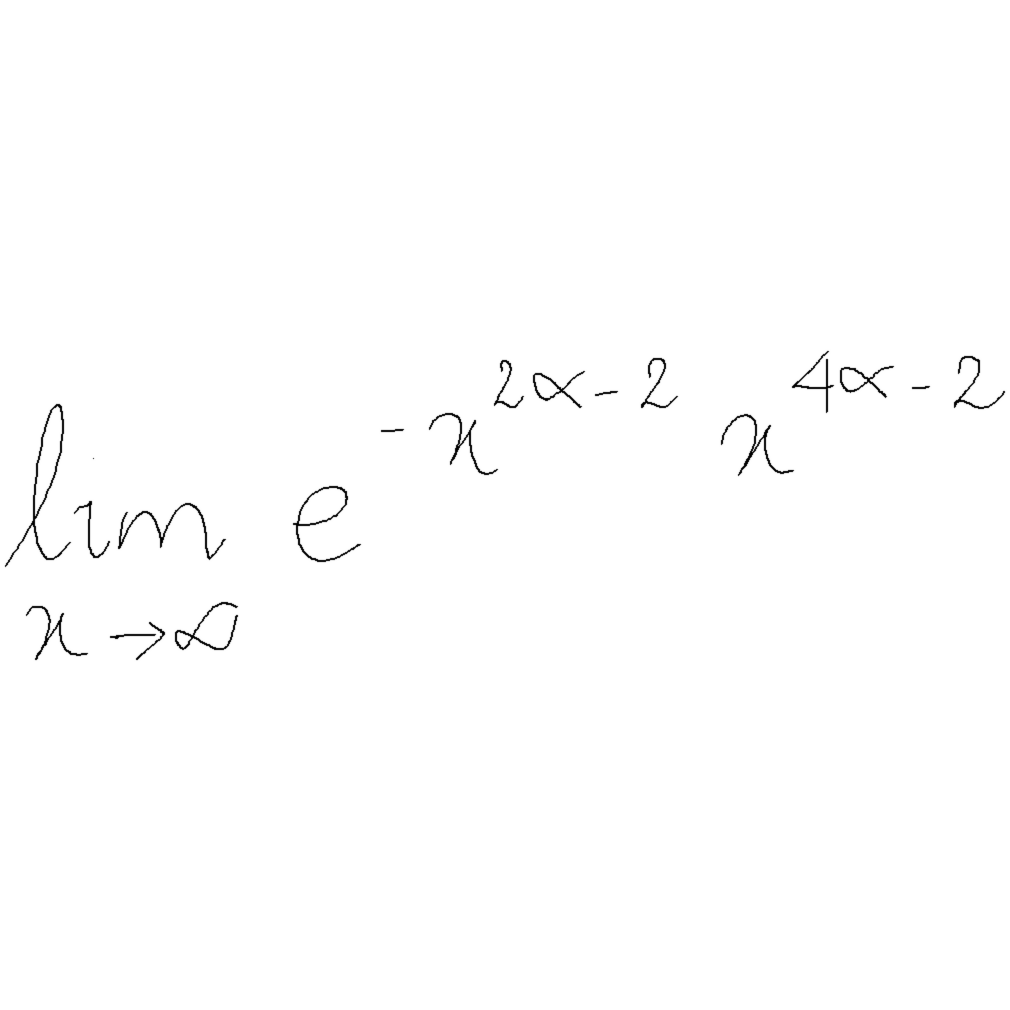 lim e^{-x^{2α-2}} x^{4α-2}
x→∞